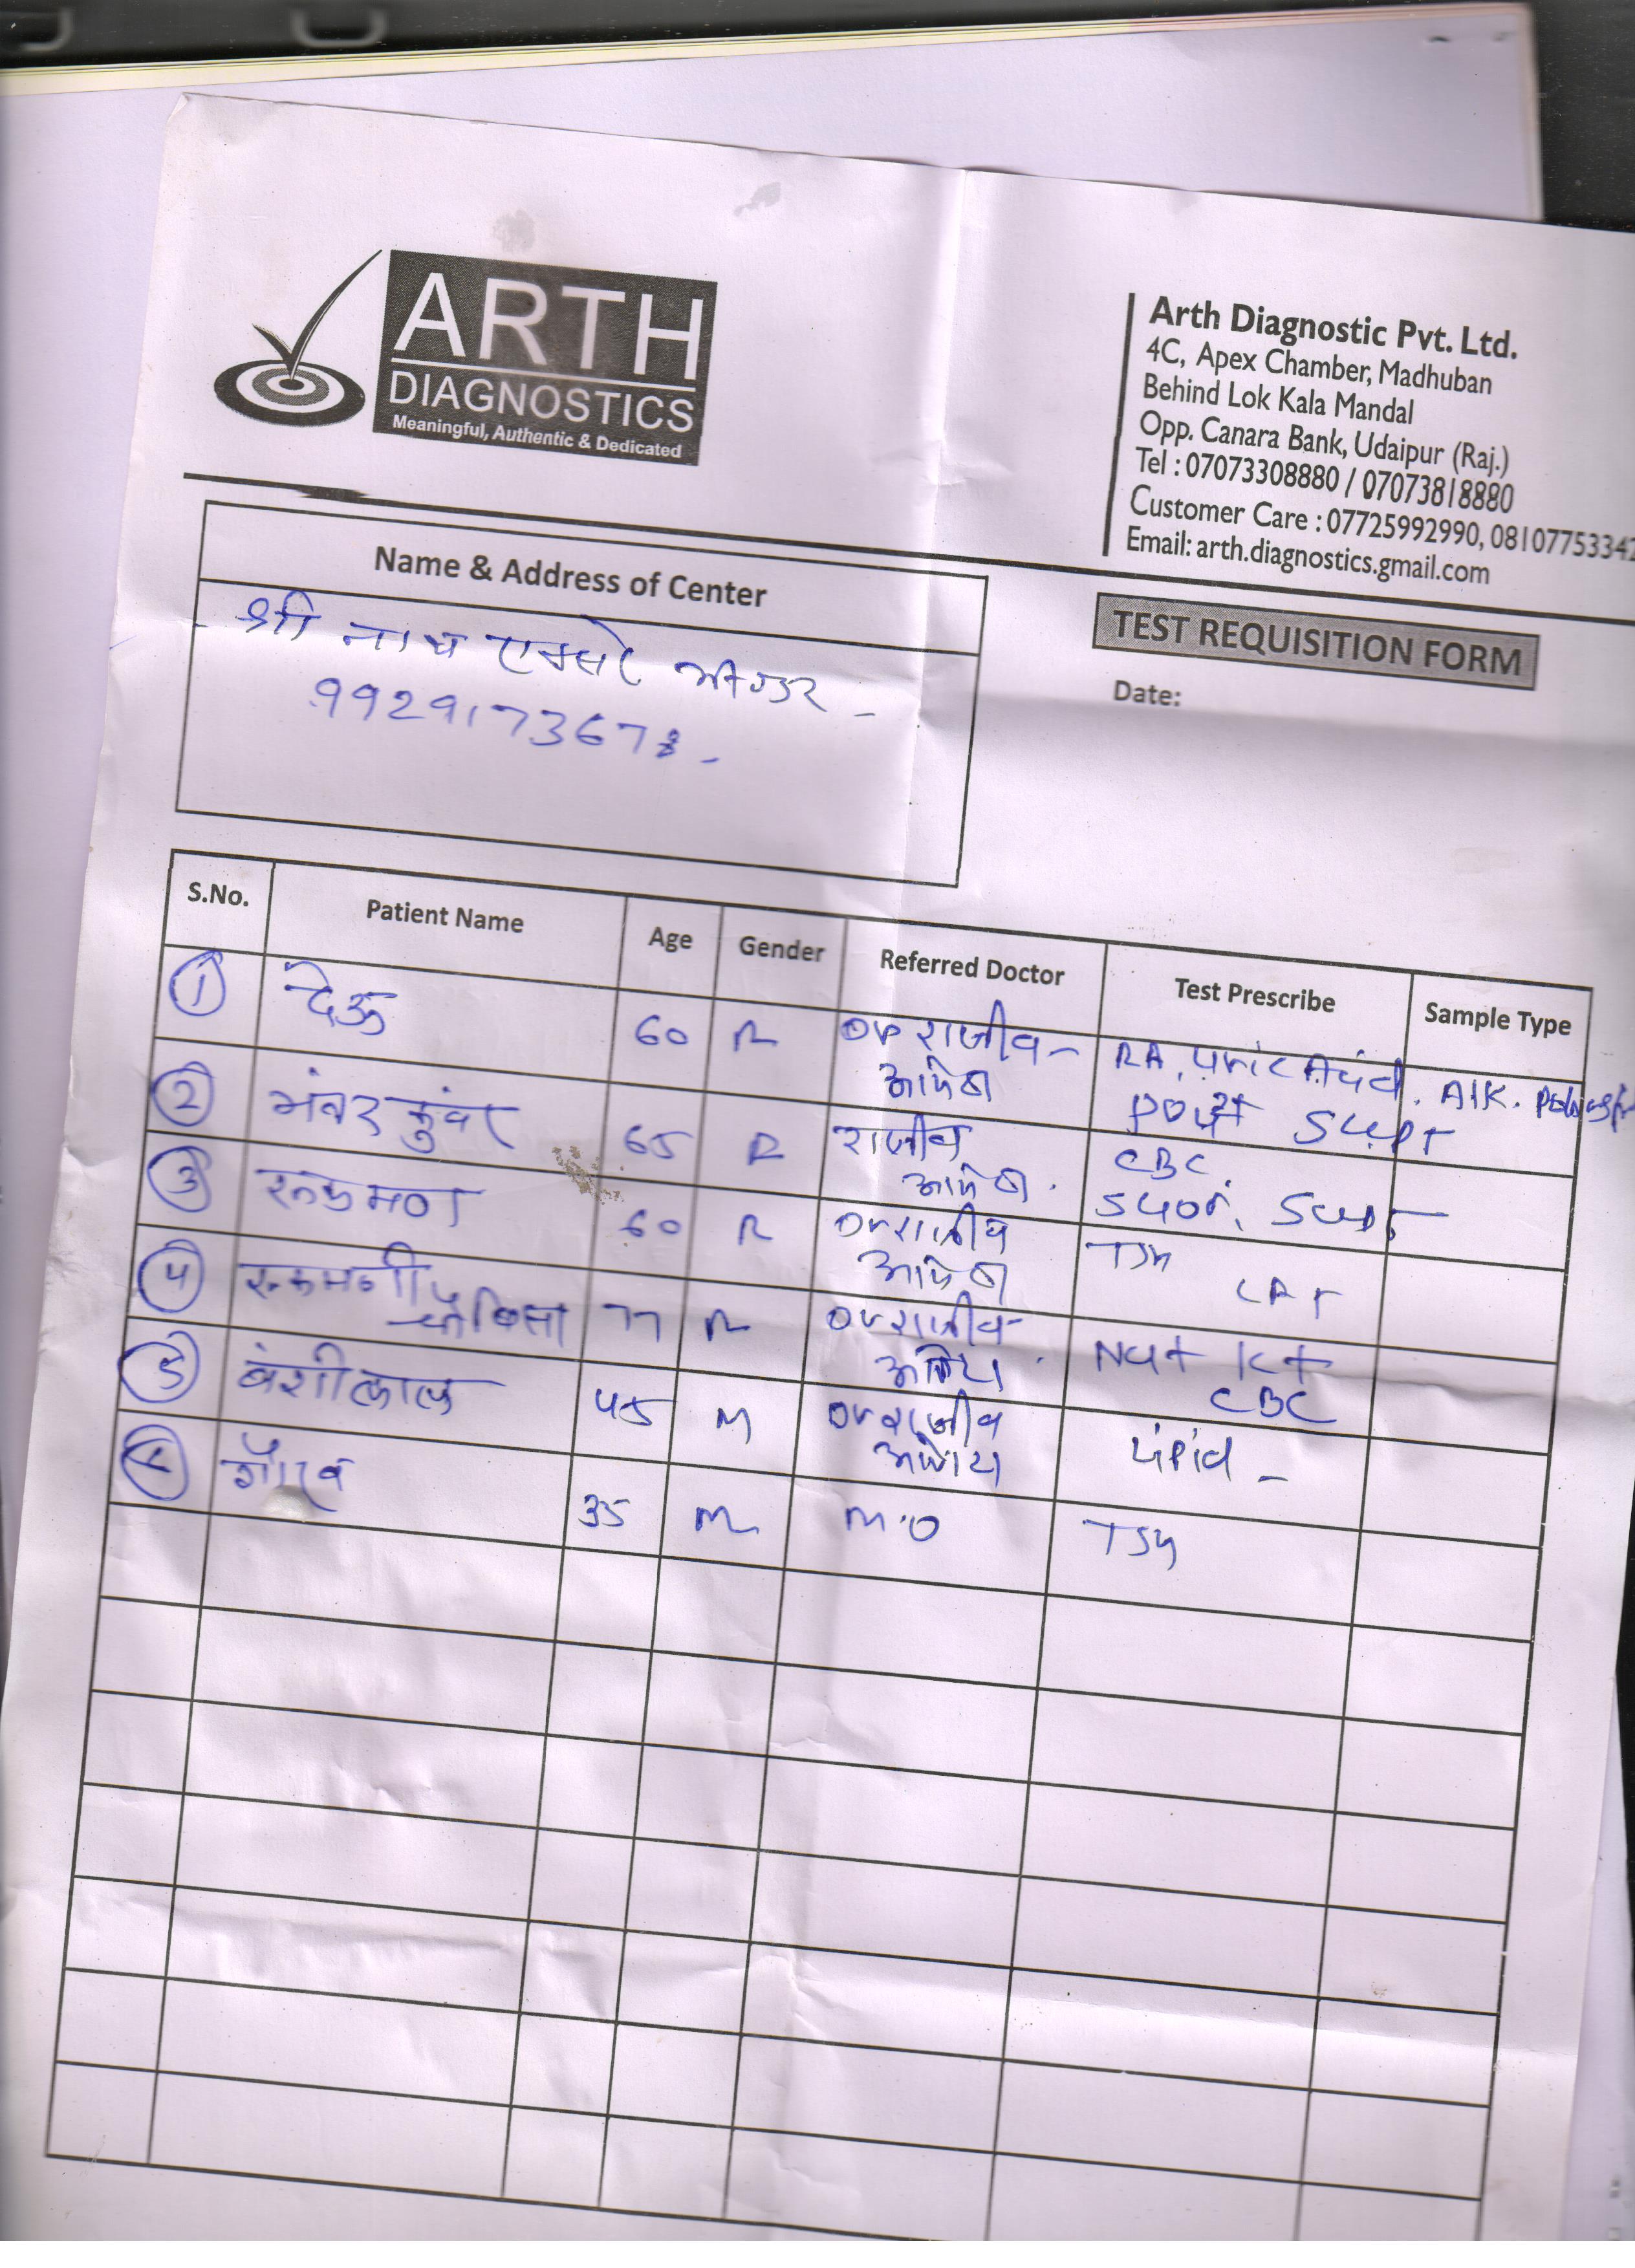 ARTH
DIAGNOSTICS
Meaningful, Authentic & Dedicated
Arth Diagnostic Pvt. Ltd.
4C, Apex Chamber, Madhuban
Behind Lok Kala Mandal
Opp. Canara Bank, Udaipur (Raj.)
Tel : 07073308880 / 07073818880
Customer Care : 07725992990, 0810775334
Email: arth.diagnostics.gmail.com
TEST REQUISITION FORM
Date:
Name & Address of Center
श्री नाथ एक्सरे भीण्डर -
S.No. Patient Name Age Gender Referred Doctor Test Prescribe Sample Type
1 देऊ 60 Dr राजीव RA, Uric Acid, Alk.
SGPT
2 भंवर कुंवर 65 राजीव CBC
SGOT, SGPT
3 60 Dr राजीव TSH
4 रुकमणी 77 Dr राजीव Na+ K+
CBC
5 बंशीलाल 45 M Dr राजीव Lipid -
6 गौरव 35 M M.O TSH